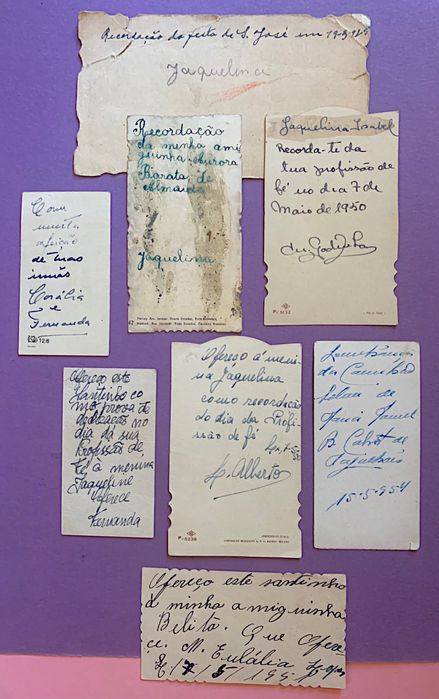 Recordação da festa de S. José em 19-3-
Jaquelina
Recordação
da minha ami
guinha Aurora
Barata de
Almeida
Jaquelina
Jaquelina Isabel
Recorda-te da
tua profissão de
fé no dia 7 de
Maio de 1950
P/5232
Com
muita
afeição
de tuas
irmãs
Corália
e
Fernanda
12/6
Ofereço este
santinho co
mo prova de
dedicação no
dia da sua
Profissão de
fé à menina
Jaqueline
oferece
Fernanda
Ofereço á meni
na Jaquelina
como recordação
do dia da Profis
são de fé
P. Alberto
P-5239
Lembrança
da Comunhão
Solene de
Maria
B. Cabot de
15-5-954
Ofereço este santinho
á minha amiguinha
Belita. Que Ofere
ce. M. Eulália